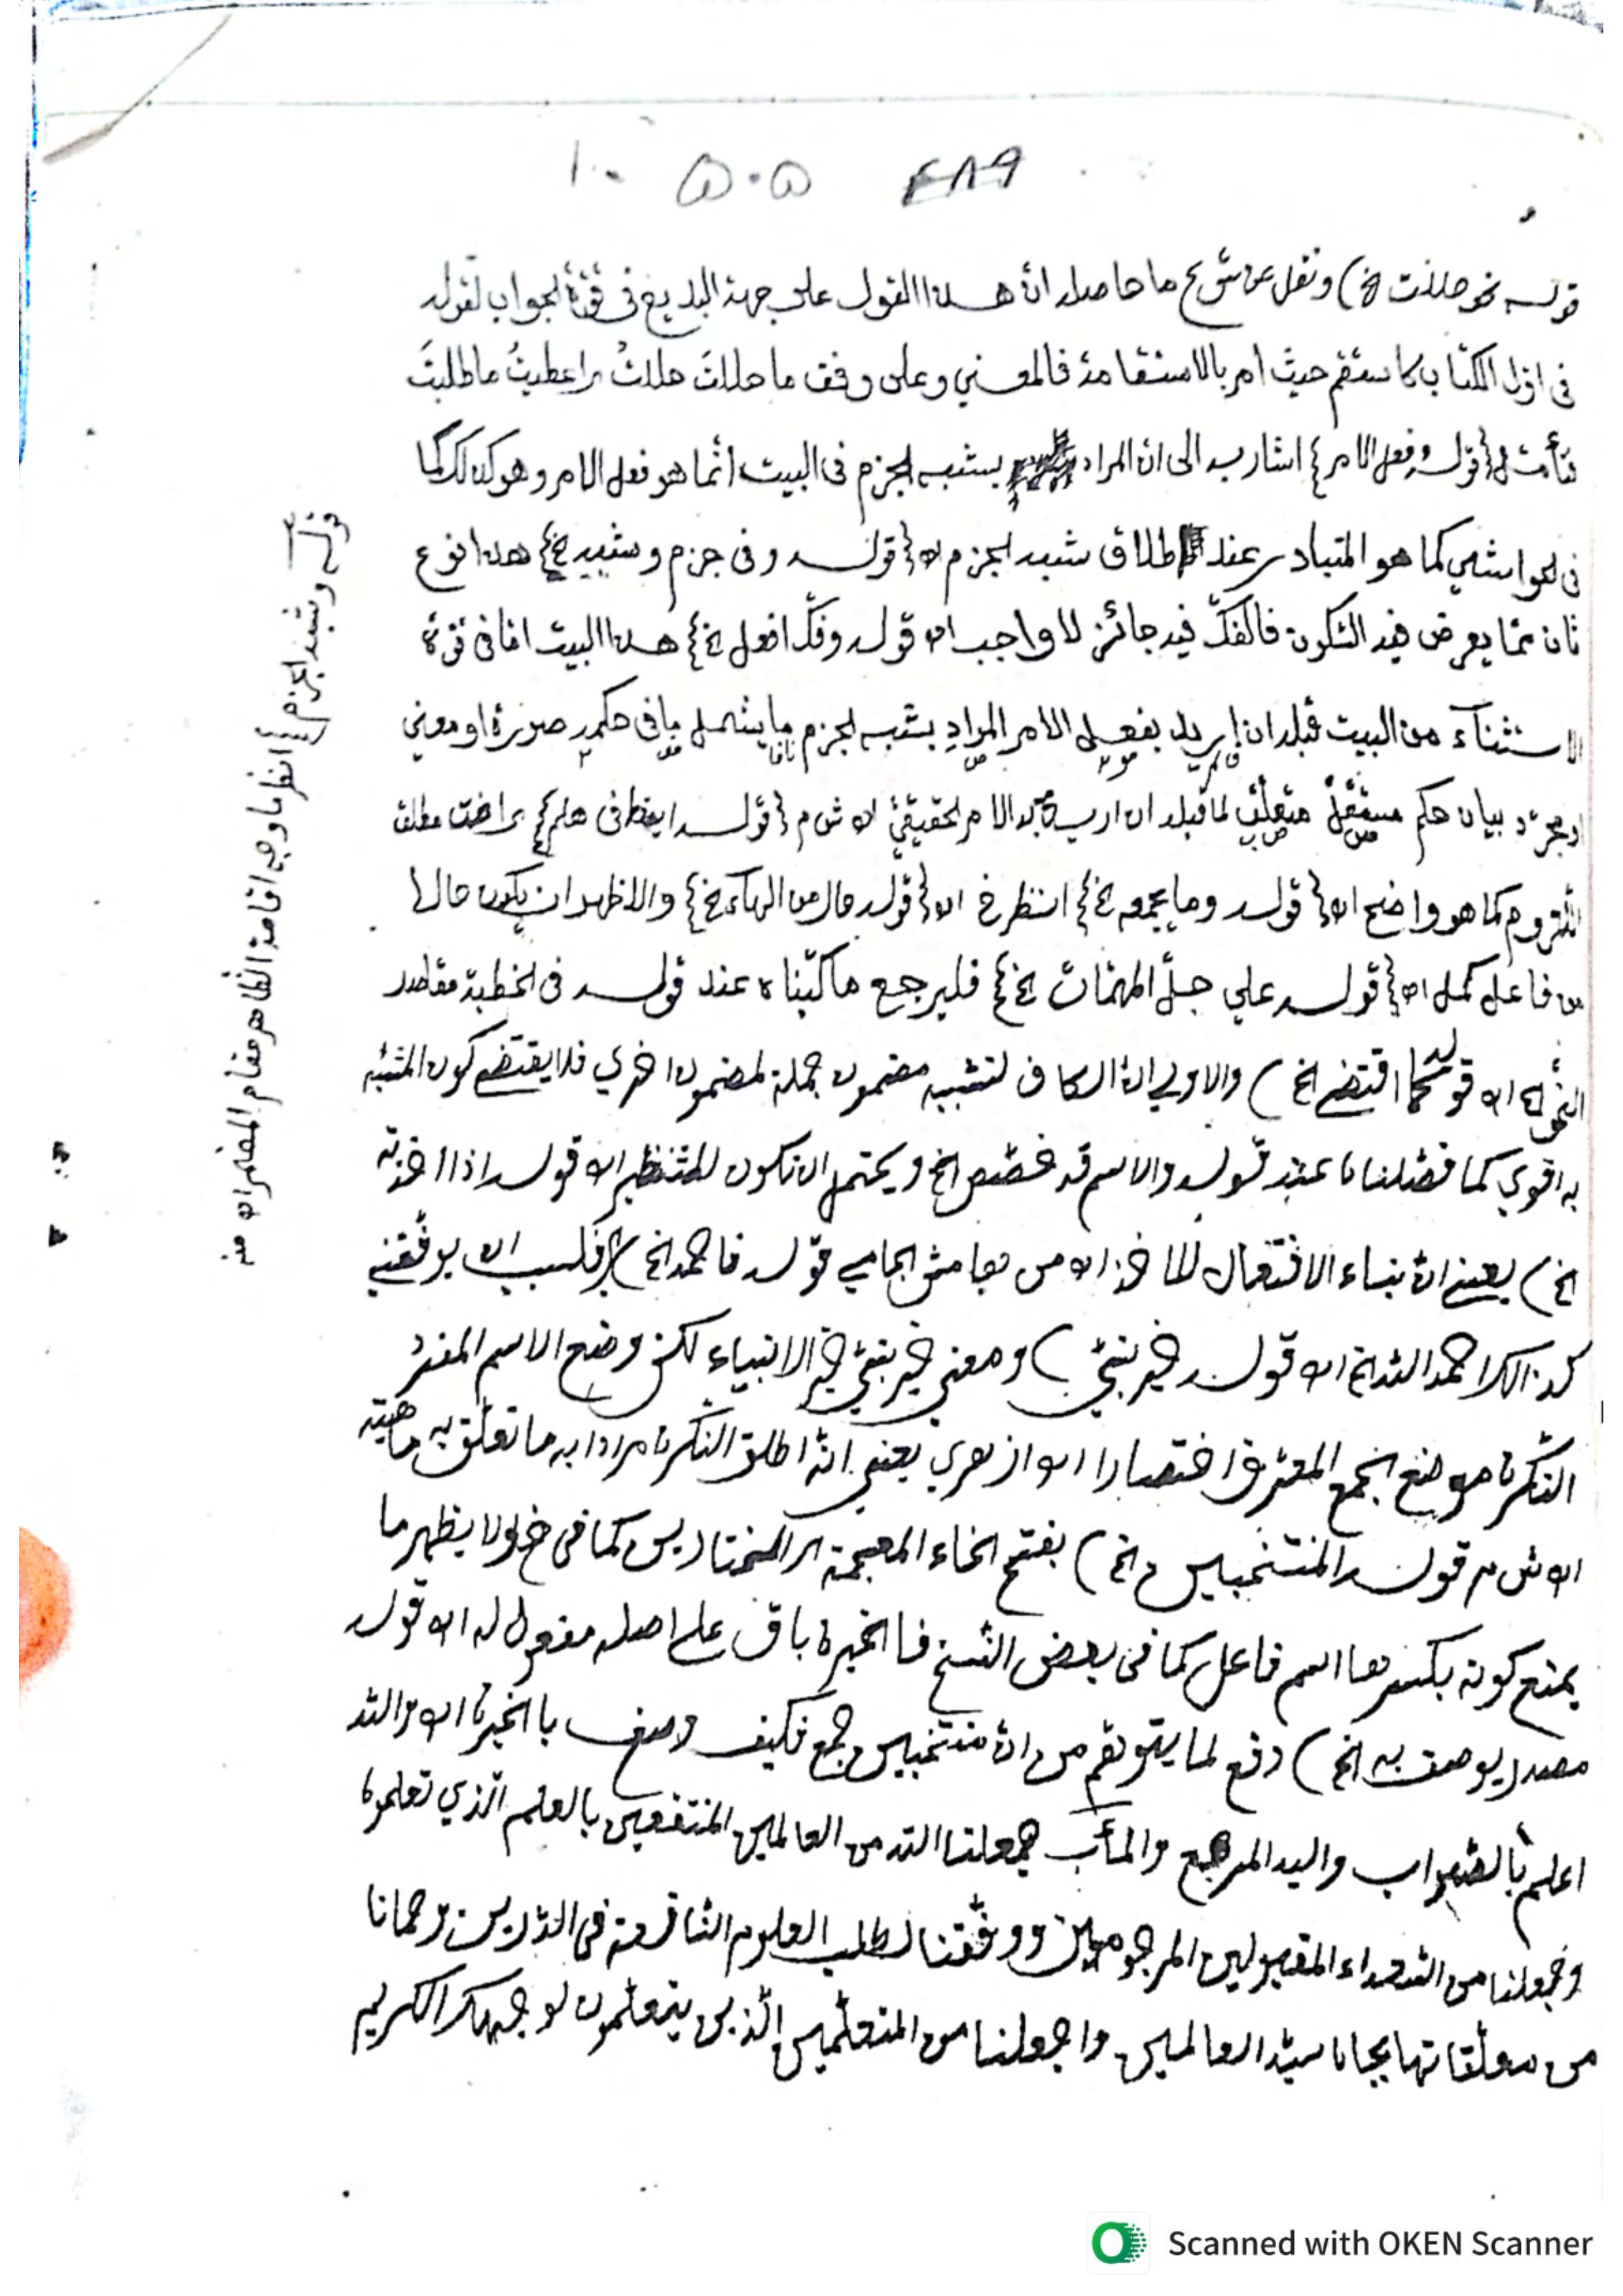 ١٠ ٥٠٥ ٤٨٩
قوله نحو حللت الخ) ونقل عن ش ع ما حاصله انّ هذا القول على جهة البديع فى قوّة الجواب لقوله
فى اوّل الكتاب كاستقم حيث أمر بالاستقامة فالمعني وعلى وفق ما حللتَ حللتُ واعطيتُ ما طلبتَ
فتأمّل {قوله وفعل الامر} اشار به الى انّ المراد بشبه الجزم فى البيت انّما هو فعل الامر وهو كذلك كما
فى الحواشي كما هو المتبادر عند اطلاق شبه الجزم اه {قوله وفى جزم وشبه الخ} هذا نوع
ثان ممّا يعرض فيه السّكون فالفكّ فيه جائز لا واجب اه قوله وفكّ افعل الخ} هذا البيت امّا فى قوّة
الاستثناء من البيت قبله ان اريد بفعل الامر المراد بشبه الجزم ما يشمل ما فى حكمه صورة او معني
او مجرّد بيان حكم مستقلّ متعلّق لما قبله ان اريد به الامر الحقيقيّ اه ش م {قوله ايضا فى هلم} راضت مطلق
اللّزوم كما هو واضح اه {قوله وما بجمعه الخ} انتظر خ اه {قوله حال من الهاء الخ} والاظهر ان يكون حالا
من فاعل كمل اه {قوله علي جلّ المهمّات الخ} فليرجع ما كتبناه عند قوله فى الخطبة مقاصد
النّحو الخ اه قوله كما اقتضى الخ) والاولى انّ الكاف لتشبيه مضمون جملة لمضمون اخري فلا يقتضى كون المشبّه
به اقوي كما فصّلناه عند قوله والاسم قد خصّص الخ ويحتمل ان تكون للتنظير اه قوله اذا اخذته
الخ) يعني انّ بناء الافتعال للاخذ اه من هامش الجامي قوله فاحمد الخ) اى فلسبب ان يوفّقني
كذالك احمد الله الخ اه قوله خير نبيّ) ومعني خير نبيّ خير الانبياء لكن وضع الاسم المفرد
النّكرة موضع الجمع المعرّف اختصارا اه ازهري يعني انّه اطلق النّكرة مرادا به ما تعلّق به ماهيّته
اه ش م قوله المنتخبين الخ) بفتح الخاء المعجمة اى المختارين كما فى خ ولا يظهر ما
يمنع كونه بكسرها اسم فاعل كما فى بعض النّسخ فالخيرة باق على اصله مفعول له اه قوله
مصدر يوصف به الخ) دفع لما يتوهّم من انّ منتخبين جمع فكيف وصف با الخيرة اه والله
اعلم بالصّواب واليه المرجع والمآب جعلنا الله من العالمين المنتفعين بالعلم الّذي تعلموه
وجعلنا من السّعداء المقبولين المرحومين ووفّقنا لطلب العلوم النّافعة فى الدّارين ورحمانا
من معلّقاتها بجاه سيّد العالمين واجعلنا من المتعلّمين الّذين يتعلّمون لوجهك الكريم
قوله وشبه الجزم} انظر ما وجه اقامة الظّاهر مقام المضمر اه منه
Scanned with OKEN Scanner